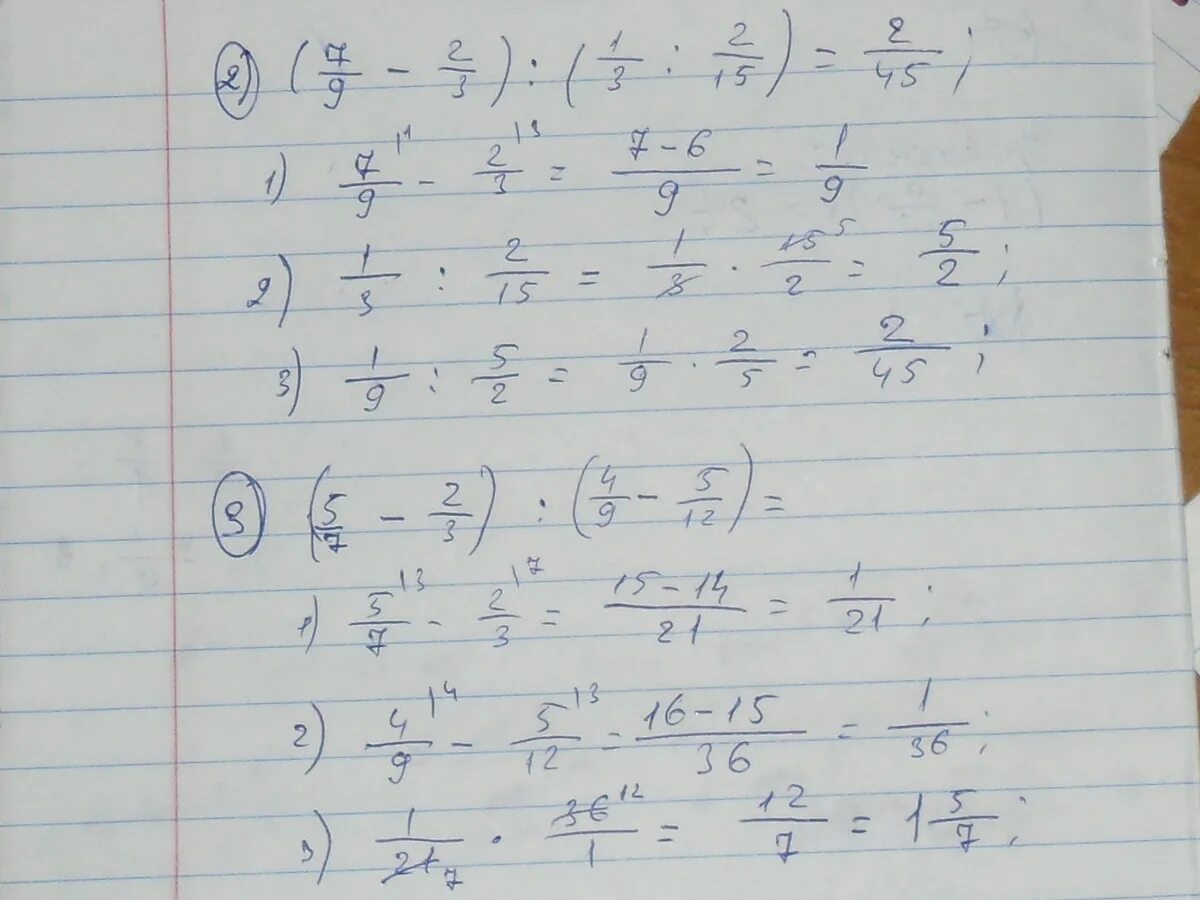 2) (7/9 - 2/3) : (1/3 : 2/15) = 2/45;
1) 7/9 |1 - 2/3 |3 = 7-6/9 = 1/9
2) 1/3 : 2/15 = 1/3 · 15/2 5 = 5/2;
3) 1/9 : 5/2 = 1/9 · 2/5 = 2/45;
3) (5/7 - 2/3) : (4/9 - 5/12) =
1) 5/7 |3 - 2/3 |7 = 15-14/21 = 1/21;
2) 4/9 |4 - 5/12 |3 = 16-15/36 = 1/36;
3) 1/21 7 · 36/1 12 = 12/7 = 1 5/7;